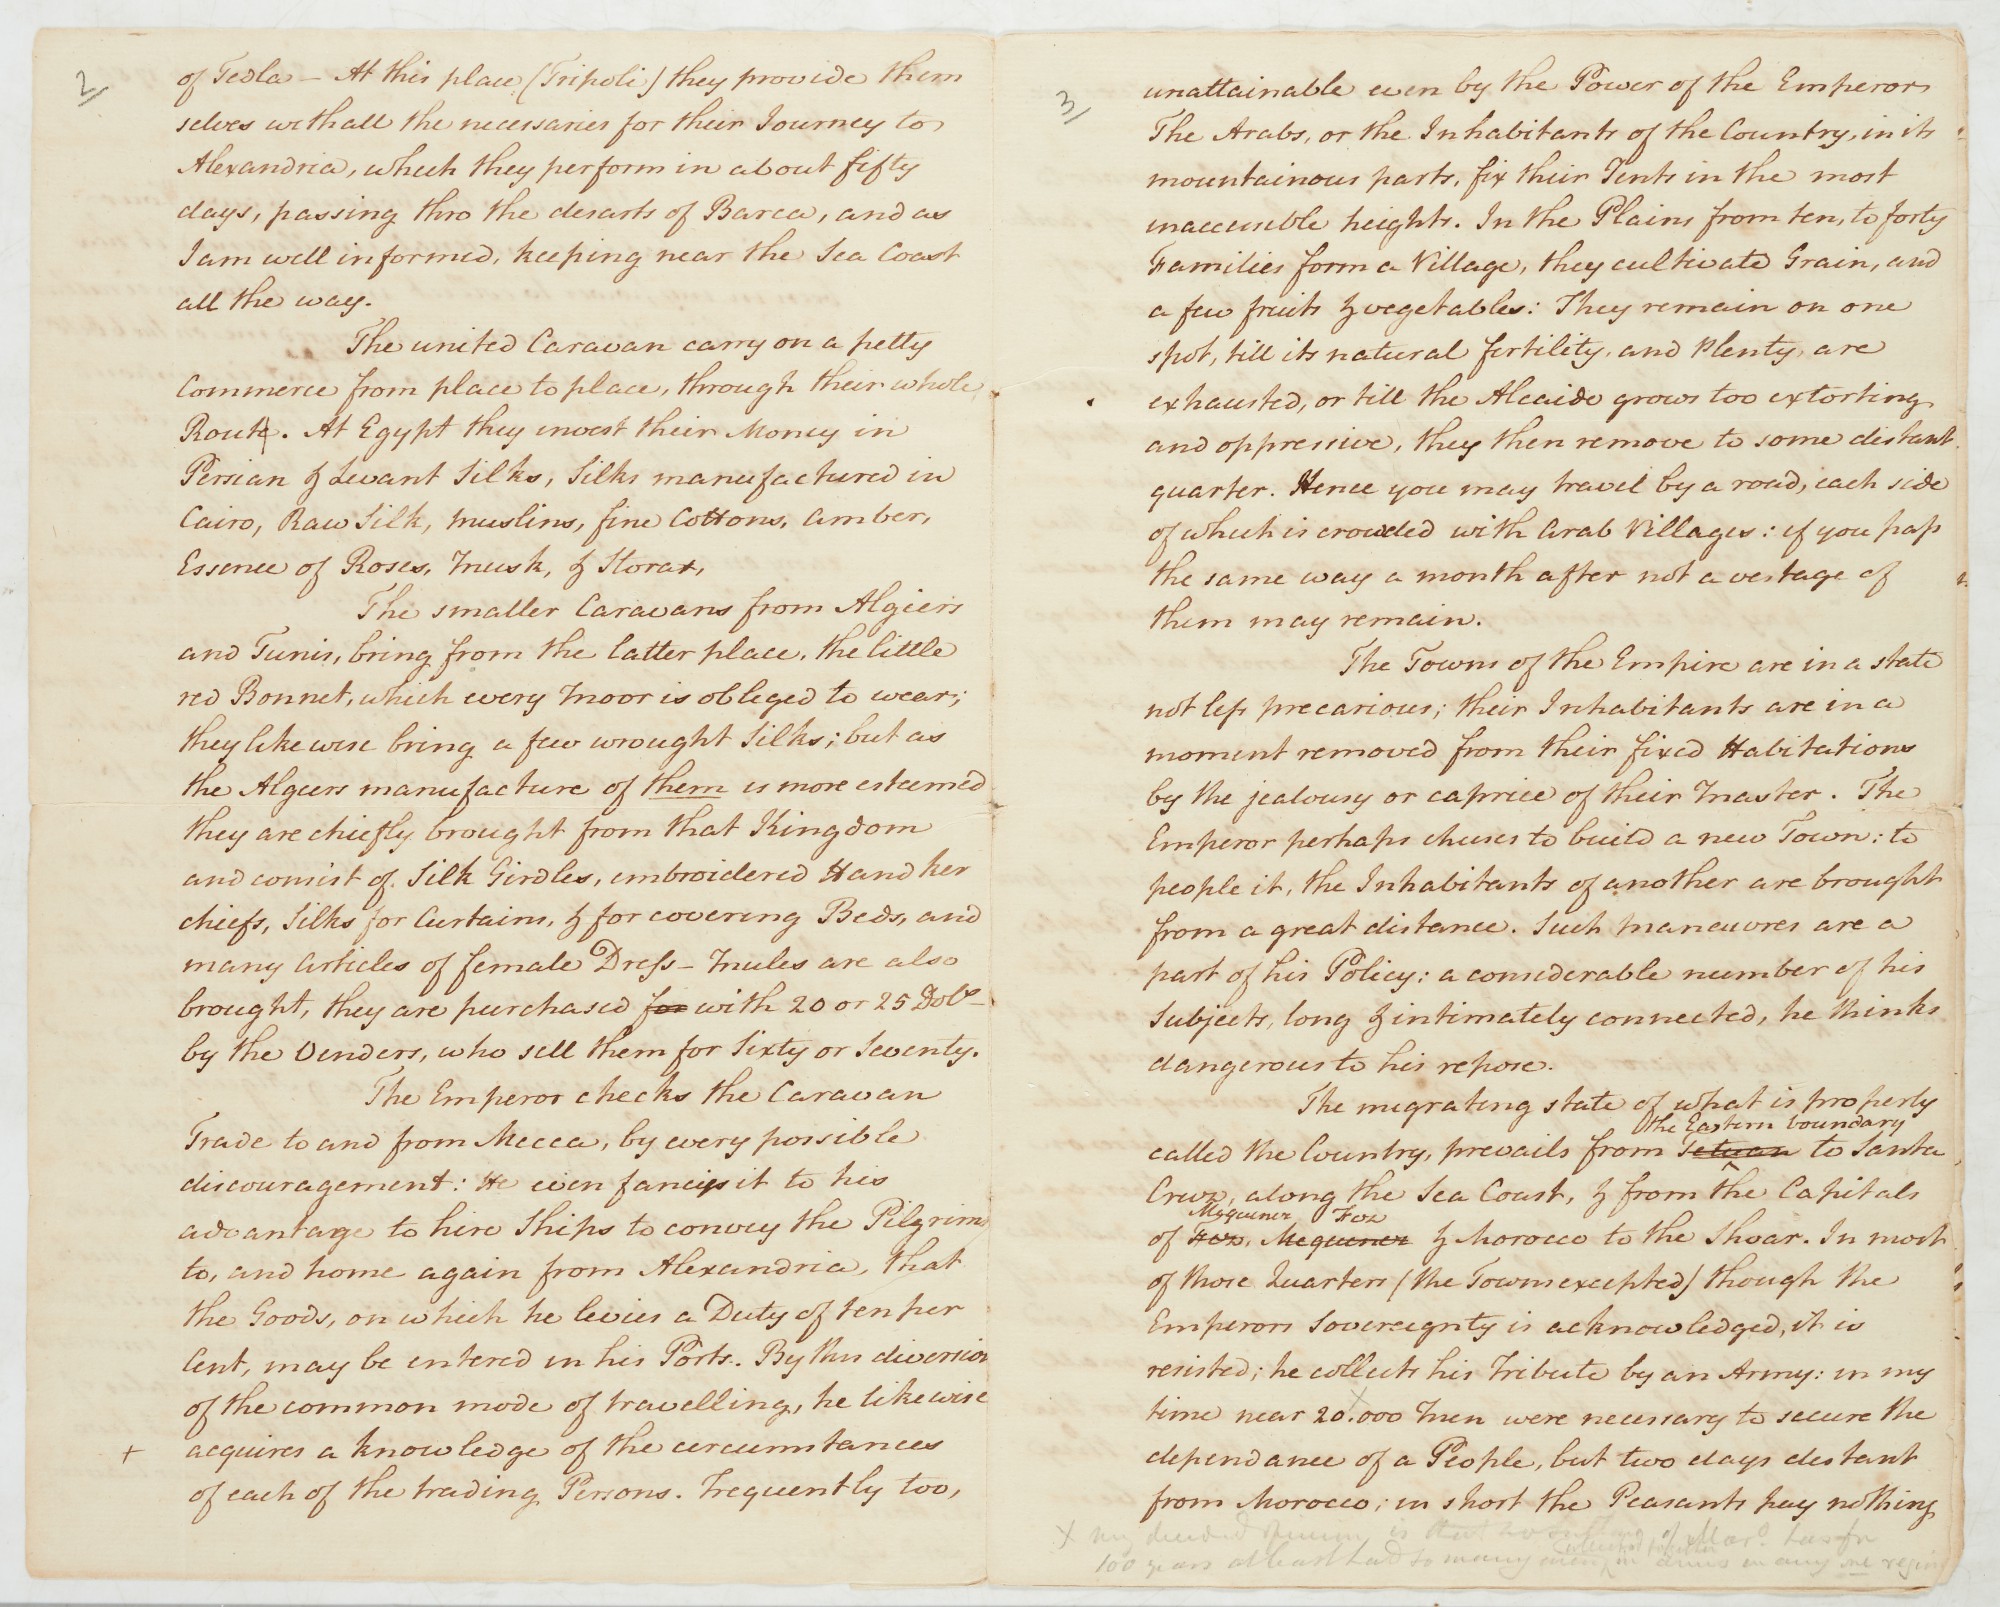 2
of Tedla – At this place (Tripoli) they provide them
selves with all the necessaries for their Journey to
Alexandria, which they perform in about fifty
days, passing thro the desarts of Barca, and as
I am well informed, keeping near the Sea Coast
all the way.
The united Caravan carry on a petty
Commerce from place to place, through their whole
Route. At Egypt they invest their Money in
Persian & Levant Silks, Silks manufactured in
Cairo, Raw Silk, Muslins, fine Cottons, Amber,
Essence of Roses, Musk, & Storax,
The smaller Caravans from Algiers
and Tunis, bring from the latter place, the little
red Bonnet, which every Moor is obleged to wear;
they likewise bring a few wrought Silks; but as
the Algiers manufacture of them is more esteemed
they are chiefly brought from that Kingdom
and consist of Silk Girdles, embroidered Hand ker
chiefs, Silks for Curtains, & for covering Beds, and
many Articles of female Dress – Mules are also
brought, they are purchased for with 20 or 25 Dolrs
by the Venders, who sell them for Sixty or Seventy.
The Emperor checks the Caravan
Trade to and from Mecca, by every possible
discouragement: He even fancys it to his
advantage to hire Ships to convey the Pilgrims
to, and home again from Alexandria, that
the Goods, on which he levies a Duty of ten per
Cent, may be entered in his Ports. By this diversion
of the common mode of travelling, he likewise
+ acquires a knowledge of the circumstances
of each of the trading Persons. Frequently too,
3
unattainable even by the Power of the Emperor
The Arabs, or the Inhabitants of the Country, in its
mountainous parts, fix their Tents in the most
inaccessible heights. In the Plains from ten, to forty
Families form a Village, they cultivate Grain, and
a few fruits & vegetables: They remain on one
spot, till its natural fertility and Plenty are
exhausted, or till the Alcaide grows too extorting
and oppressive, they then remove to some distant
quarter. Hence you may travel by a road, each side
of which is crowded with Arab Villages: if you pass
the same way a month after not a vestage of
them may remain.
The Towns of the Empire are in a state
not less precarious; their Inhabitants are in a
moment removed from their fixed Habitations
by the jealousy or caprice of their Master. The
Emperor perhaps chuses to build a new Town: to
people it, the Inhabitants of another are brought
from a great distance. Such Maneuvres are a
part of his Policy: a considerable number of his
Subjects, long & intimately connected, he thinks
dangerous to his repose.
The migrating state of what is properly
the Eastern boundary
called the Country, prevails from Tetuan to Santa
Cruz, along the Sea Coast, & from the Capitals
Mequenez Fez
of Fez, Mequenez & Morocco to the Shoar. In most
of those Quarters (the Towns excepted) though the
Emperors Sovereignty is acknowledged, it is
resisted; he collects his Tribute by an Army: in my
time near 20.000 Men were necessary to secure the
dependance of a People, but two days distant
from Morocco; in short the Peasants pay nothing
X my decided opinion is that no of Maro. has for
100 years at least had so many men in arms in any one